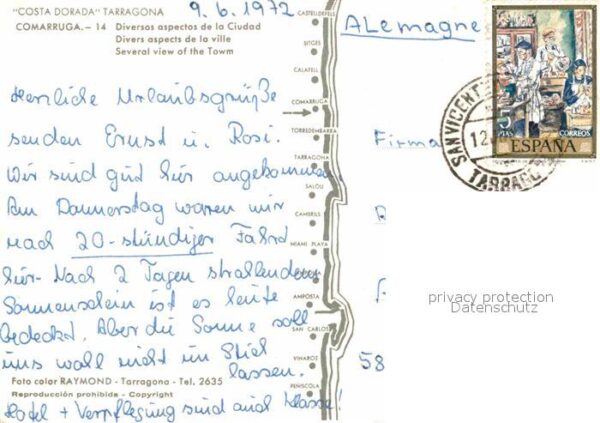 "COSTA DORADA" TARRAGONA
COMARRUGA. - 14 Diversos aspectos de la Ciudad
Divers aspects de la ville
Several view of the Towm
9. 6. 1972
ALemagne
Herzliche Urlaubsgrüße
senden Ernst u. Rosi.
Wir sind gut hier angekommen
Am Donnerstag waren wir
nach 20-stündiger Fahrt
hier. Nach 2 Tagen strahlendem
Sonnenschein ist es heute
bedeckt. Aber die Sonne soll
uns wohl nicht im Stich
lassen.
Hotel + Verpflegung sind auch klasse!
Foto color RAYMOND - Tarragona - Tel. 2635
Reproducción prohibida - Copyright
CASTELLDEFELS
SITGES
CALAFELL
COMARRUGA
TORREDEMBARRA
TARRAGONA
SALOU
CAMBRILS
MIAMI PLAYA
AMPOSTA
SAN CARLOS
VINAROZ
PEÑISCOLA
Firma
58
5
PTAS
CORREOS
ESPAÑA
SAN VICENTE
12
TARRAG
privacy protection
Datenschutz